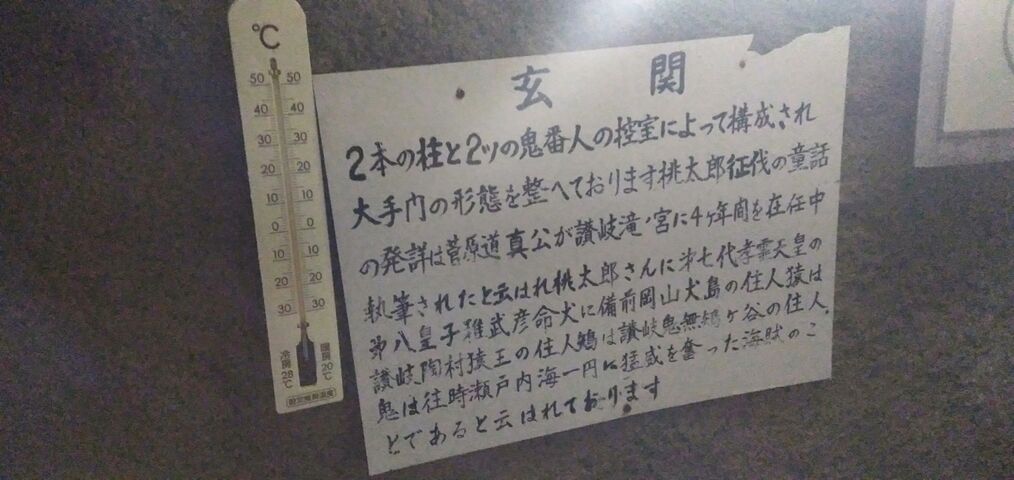 ℃
50 50
40 40
30 30
20 20
10 10
0 0
10 10
20 20
30 30
冷房 暖房
28℃ 20℃
玄関
2本の柱と2ツの鬼番人の控室によって構成され
大手門の形態を整へております桃太郎征伐の童話
の発詳は菅原道真公が讃岐滝ノ宮に4ヶ年間を在任中
執筆されたと云はれ桃太郎さんに第七代孝霊天皇の
第八皇子稚武彦命犬に備前岡山犬島の住人猿は
讃岐陶村猿王の住人鳰は讃岐鬼無鳰ヶ谷の住人
鬼は往時瀬戸内海一円に猛威を奮った海賊のこ
とであると云はれております